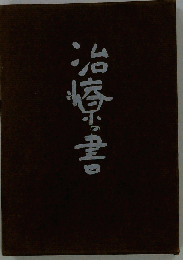 治療の書